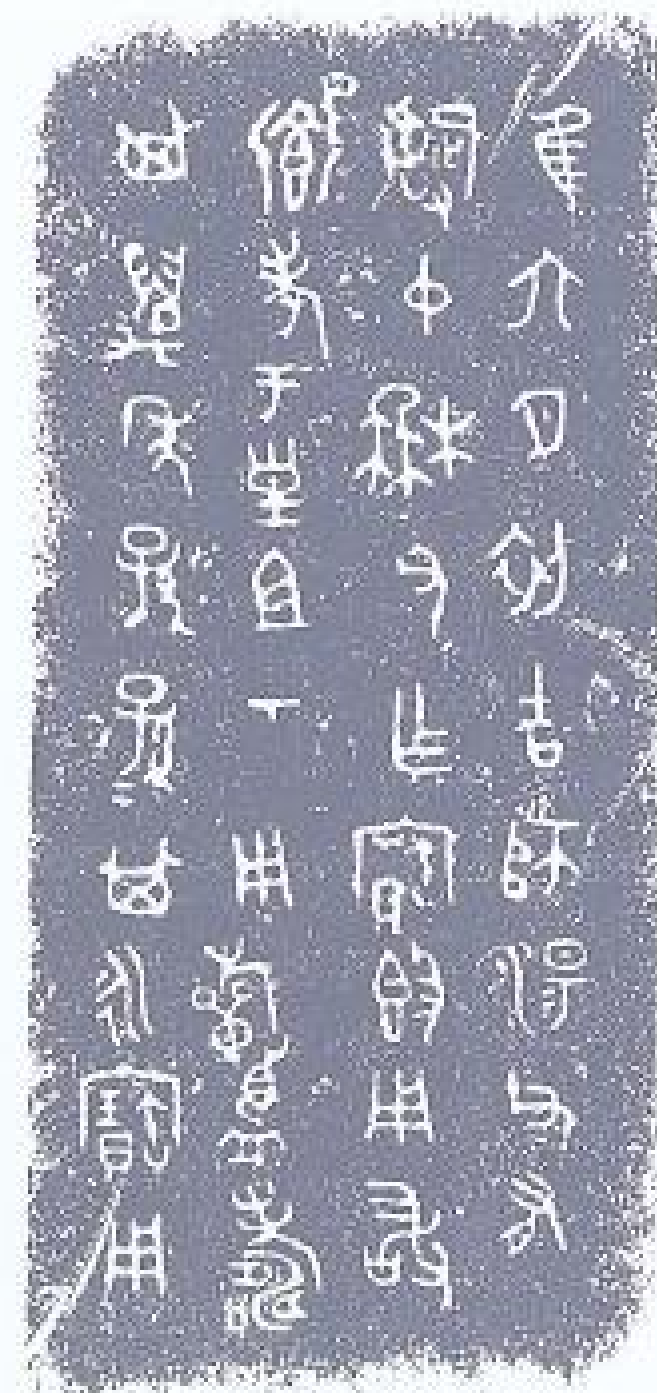 隹六月初吉師湯父有
司中枏父乍寶鬲用敢
鄉孝于皇且丂用𣄨眉壽
其萬年子孫其永寶用